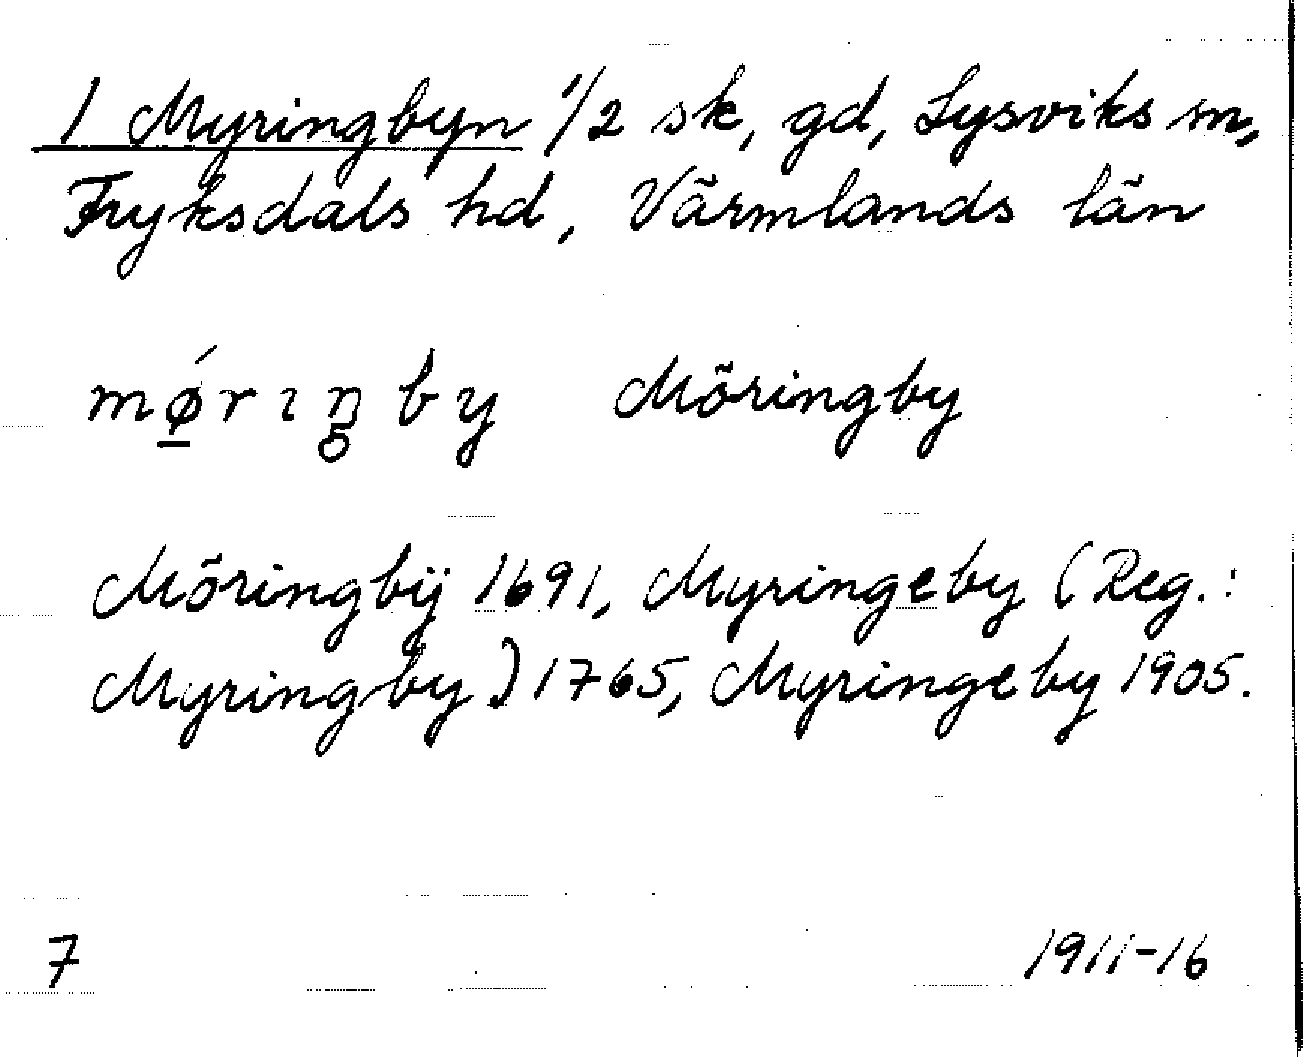 1 Myringbyn 1/2 sk, gd, Lysviks sn,
Fryksdals hd, Värmlands län
mǿ̲rıŋby Möringby
Möringbÿ 1691, Myringeby (Reg.:
Myringby) 1765, Myringeby 1905.
7 1911-16